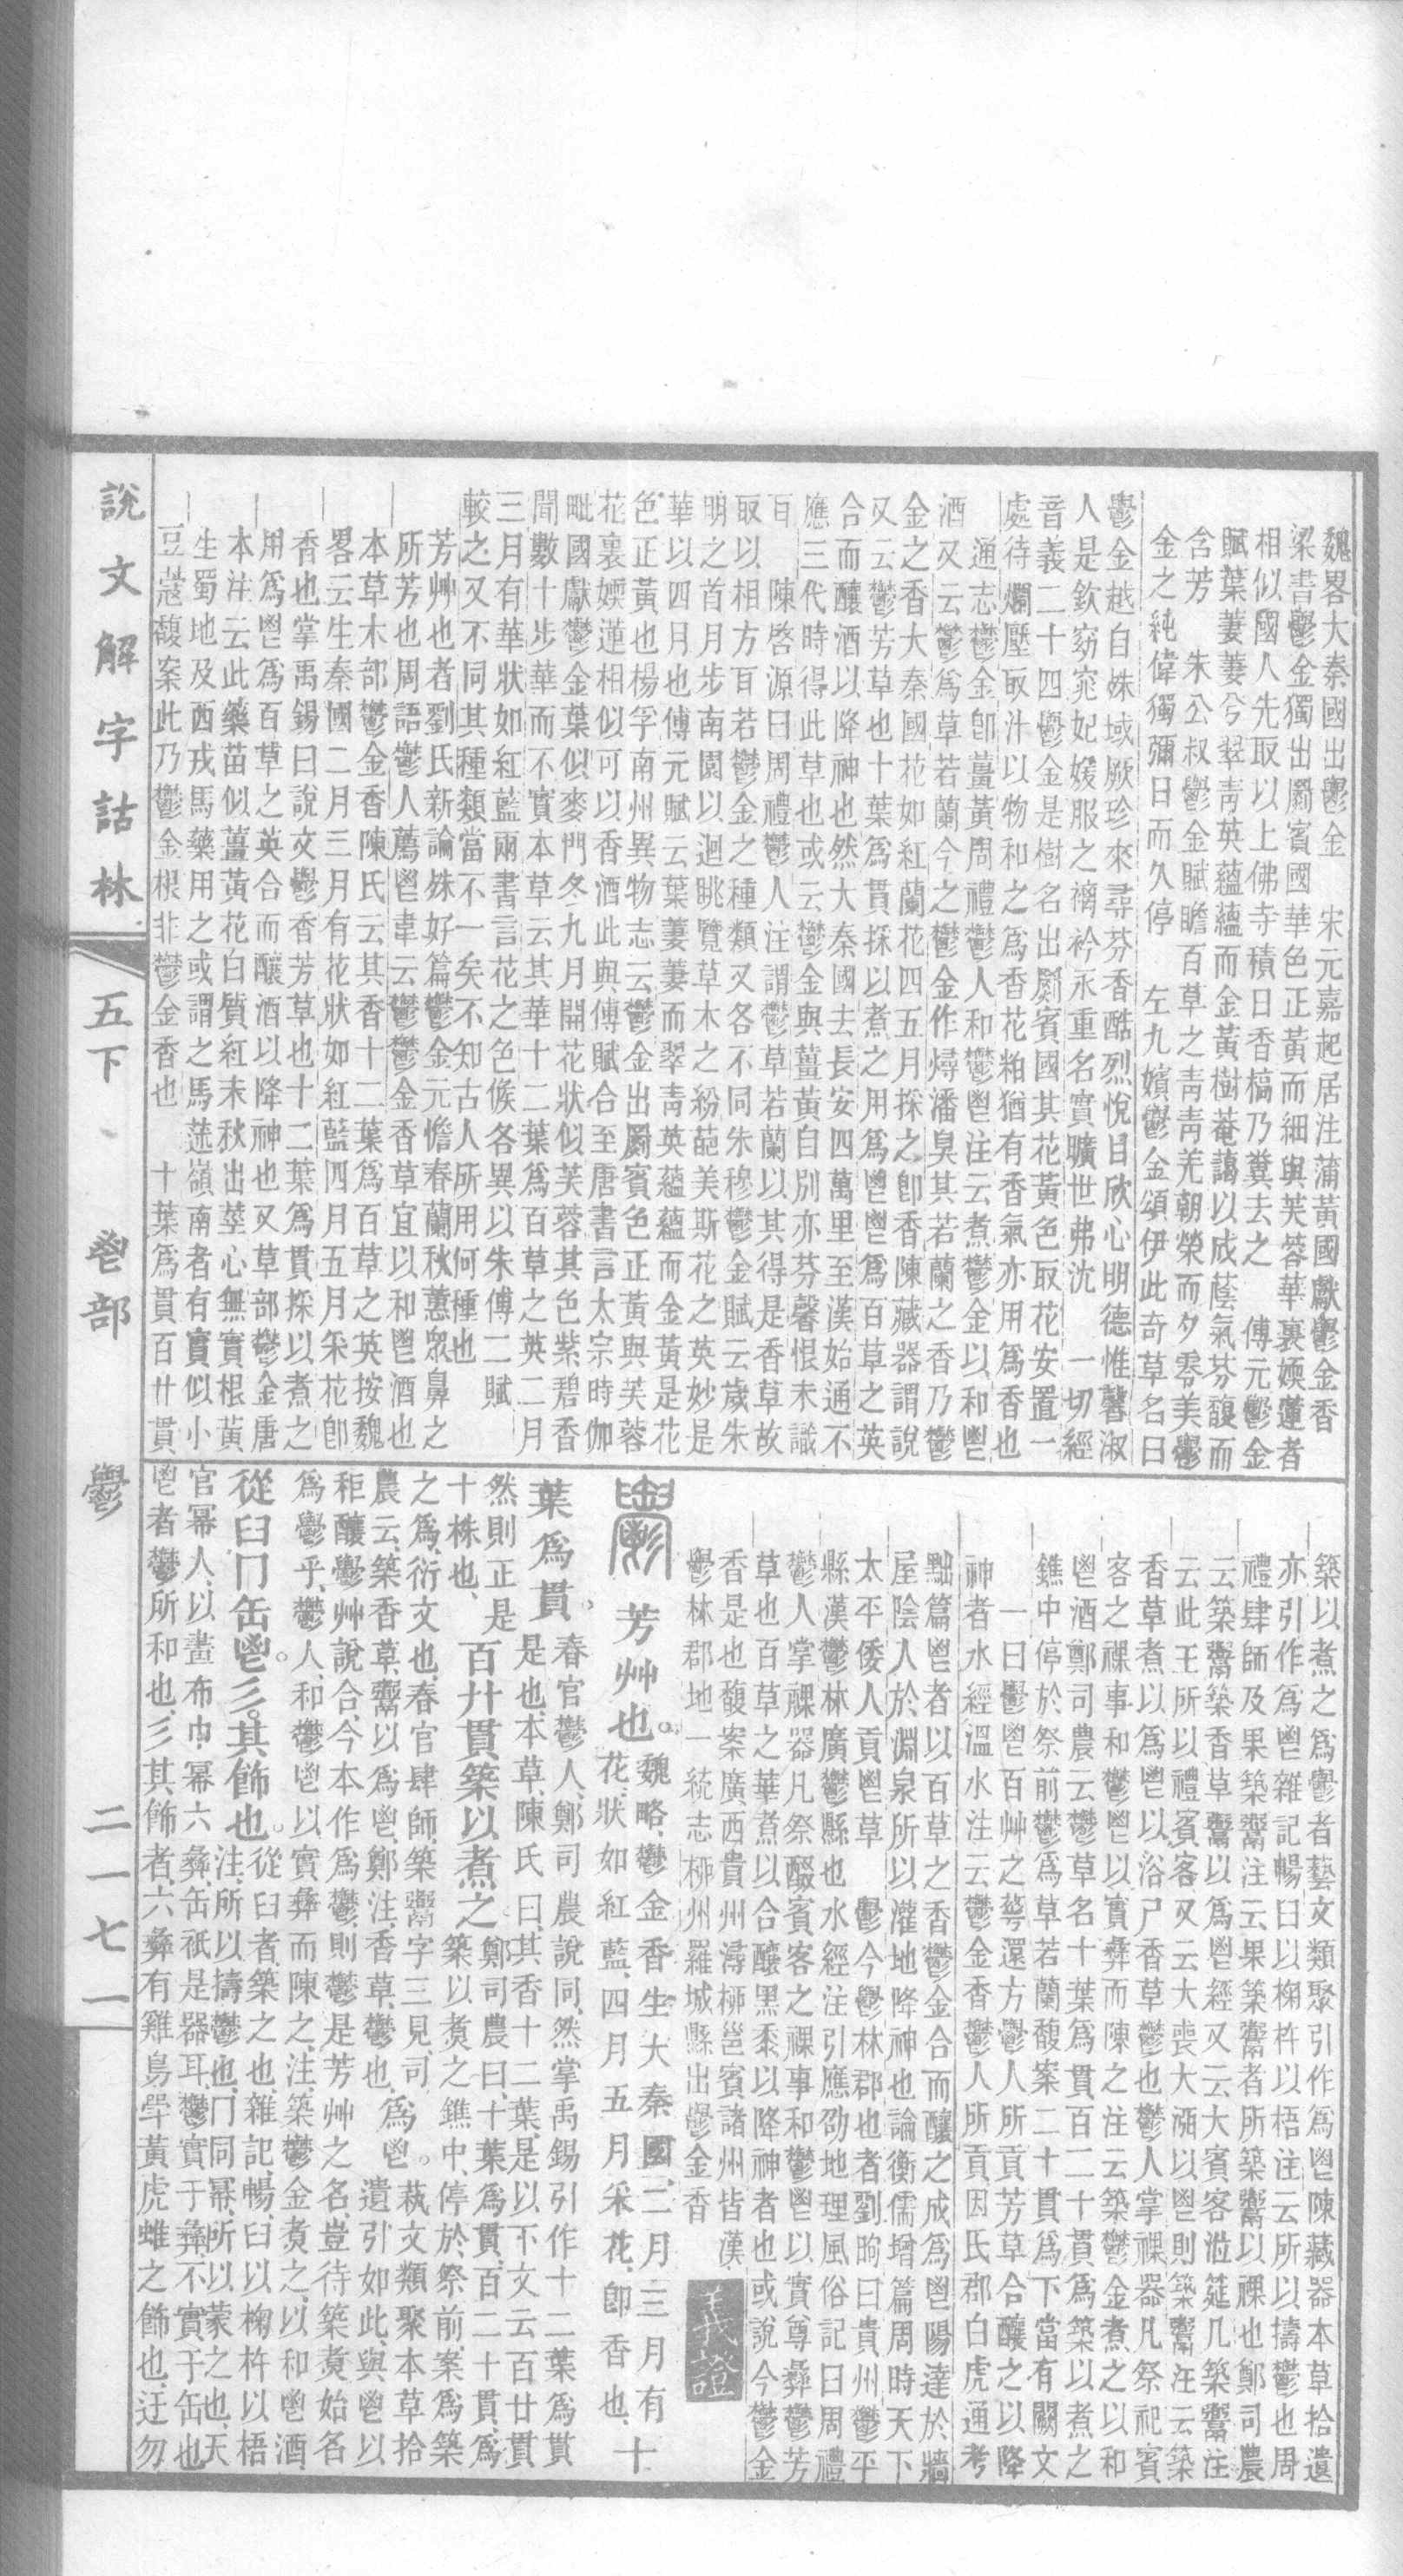 魏畧大秦國出鬱金　宋元嘉起居注蒲黃國獻鬱金香
梁書鬱金獨出罽賓國華色正黃而細與芙蓉華裏媆蓮者
相似國人先取以上佛寺積日香槁乃糞去之　傅元鬱金
賦葉萋萋兮翠青英蘊蘊而金黃樹菴藹以成蔭氣芬馥而
含芳　朱公叔鬱金賦瞻百草之青青羌朝榮而夕零美鬱
金之純偉獨彌日而久停　左九嬪鬱金頌伊此奇草名曰
鬱金越自姝域厥珍來尋芬香酷烈悅目欣心明德惟馨淑
人是欽窈窕妃媛服之褵衿永重名實曠世弗沈　一切經
音義二十四鬱金是樹名出罽賓國其花黃色取花安置一
處待爛壓取汁以物和之爲香花粕猶有香氣亦用爲香也
通志鬱金卽薑黃周禮鬱人和鬱鬯注云煮鬱金以和鬯
酒又云鬱爲草若蘭今之鬱金作燖潘臭其若蘭之香乃鬱
金之香大秦國花如紅蘭花四五月採之卽香陳藏器謂說
又云鬱芳草也十葉爲貫採以煮之用爲鬯鬯爲百草之英
合而釀酒以降神也然大秦國去長安四萬里至漢始通不
應三代時得此草也或云鬱金與薑黃自別亦芬馨恨未識
百　陳啓源曰周禮鬱人注謂鬱草若蘭以其得是香草故
取以相方百若鬱金之種類又各不同朱穆鬱金賦云歲朱
明之首月步南園以迴眺覽草木之紛葩美斯花之英妙是
華以四月也傅元賦云葉萋萋而翠青英蘊蘊而金黃是花
色正黃也楊孚南州異物志云鬱金出罽賓色正黃與芙蓉
花裏媆蓮相似可以香酒此與傅賦合至唐書言太宗時伽
毗國獻鬱金葉似麥門冬九月開花狀似芙蓉其色紫碧香
聞數十步華而不實本草云其華十二葉爲百草之英二月
三月有華狀如紅藍兩書言花之色候各異以朱傅二賦
較之又不同其種類當不一矣不知古人所用何種也
芳艸也者劉氏新論姝好篇鬱金元憺春蘭秋蕙眾鼻之
所芳也周語鬱人薦鬯韋云鬱鬱金香草宜以和鬯酒也
本草木部鬱金香陳氏云其香十二葉爲百草之英按魏
畧云生秦國二月三月有花狀如紅藍四月五月采花卽
香也掌禹錫曰說文鬱香芳草也十二葉爲貫採以煮之
用爲鬯爲百草之英合而釀酒以降神也又草部鬱金唐
本注云此藥苗似薑黃花白質紅末秋出莖心無實根黃
生蜀地及西戎馬藥用之或謂之馬蒁嶺南者有實似小
豆蔻馥案此乃鬱金根非鬱金香也　十葉爲貫百廾貫
築以煮之爲鬱者藝文類聚引作爲鬯陳藏器本草拾遺
亦引作爲鬯雜記暢曰以椈杵以梧注云所以擣鬱也周
禮肆師及果築鬻注云果築鬻者所築鬻以祼也鄭司農
云築鬻築香草鬻以爲鬯經又云大賓客涖筵几築鬻注
云此王所以禮賓客又云大喪大渳以鬯則築鬻注云築
香草煮以爲鬯以浴尸香草鬱也鬱人掌祼器凡祭祀賓
客之祼事和鬱鬯以實彝而陳之注云築鬱金煮之以和
鬯酒鄭司農云鬱草名十葉爲貫百二十貫爲築以煮之
鐎中停於祭前鬱爲草若蘭馥案二十貫爲下當有闕文
一曰鬱鬯百艸之蕐遠方鬱人所貢芳草合釀之以降
神者水經溫水注云鬱金香鬱人所貢因氏郡白虎通考
黜篇鬯者以百草之香鬱金合而釀之成爲鬯陽達於牆
屋陰入於淵泉所以灌地降神也論衡儒增篇周時天下
太平倭人貢鬯草　鬱今鬱林郡也者劉昫曰貴州鬱平
縣漢鬱林廣鬱縣也水經注引應劭地理風俗記曰周禮
鬱人掌祼器凡祭醊賓客之祼事和鬱鬯以實尊彝鬱芳
草也百草之華煮以合釀黑黍以降神者也或說今鬱金
香是也馥案廣西貴州潯柳邕賓諸州皆漢
鬱林郡地一統志柳州羅城縣出鬱金香
義證
芳艸也。魏略、鬱金香生大秦國、二月三月有
花、狀如紅藍、四月五月采花、卽香也、十
葉爲貫。春官鬱人、鄭司農說同、然掌禹錫引作十二葉爲貫
是也、本草、陳氏曰、其香十二葉、是以下文云百廿貫
然則正是
十株也、百廾貫築以煮之。鄭司農曰、十葉爲貫、百二十貫、爲
築以煮之鐎中、停於祭前、案爲築
之爲、衍文也、春官肆師、築鬻字三見、司爲鬯。蓺文類聚本草拾
農云、築香草、鬻以爲鬯、鄭注、香草、鬱也、遺引如此、與鬯以
秬釀鬱艸說合、今本作爲鬱、則鬱是芳艸之名、豈待築煮始名
爲鬱乎、鬱人、和鬱鬯以實彝而陳之、注、築鬱金煮之、以和鬯酒
從臼冂缶鬯。彡。其飾也。從臼者、築之也、雜記、暢、臼以椈、杵以梧
注、所以擣鬱也、冂同冪、所以蒙之也、天
官冪人、以畫布巾冪六彝、缶祇是器耳、鬱實于彝、不實于缶也
鬯者鬱所和也、彡其飾者、六彝有雞鳥斝黃虎蜼之飾也、迂勿
說文解字詁林
五下　鬯部　鬱　二一七一